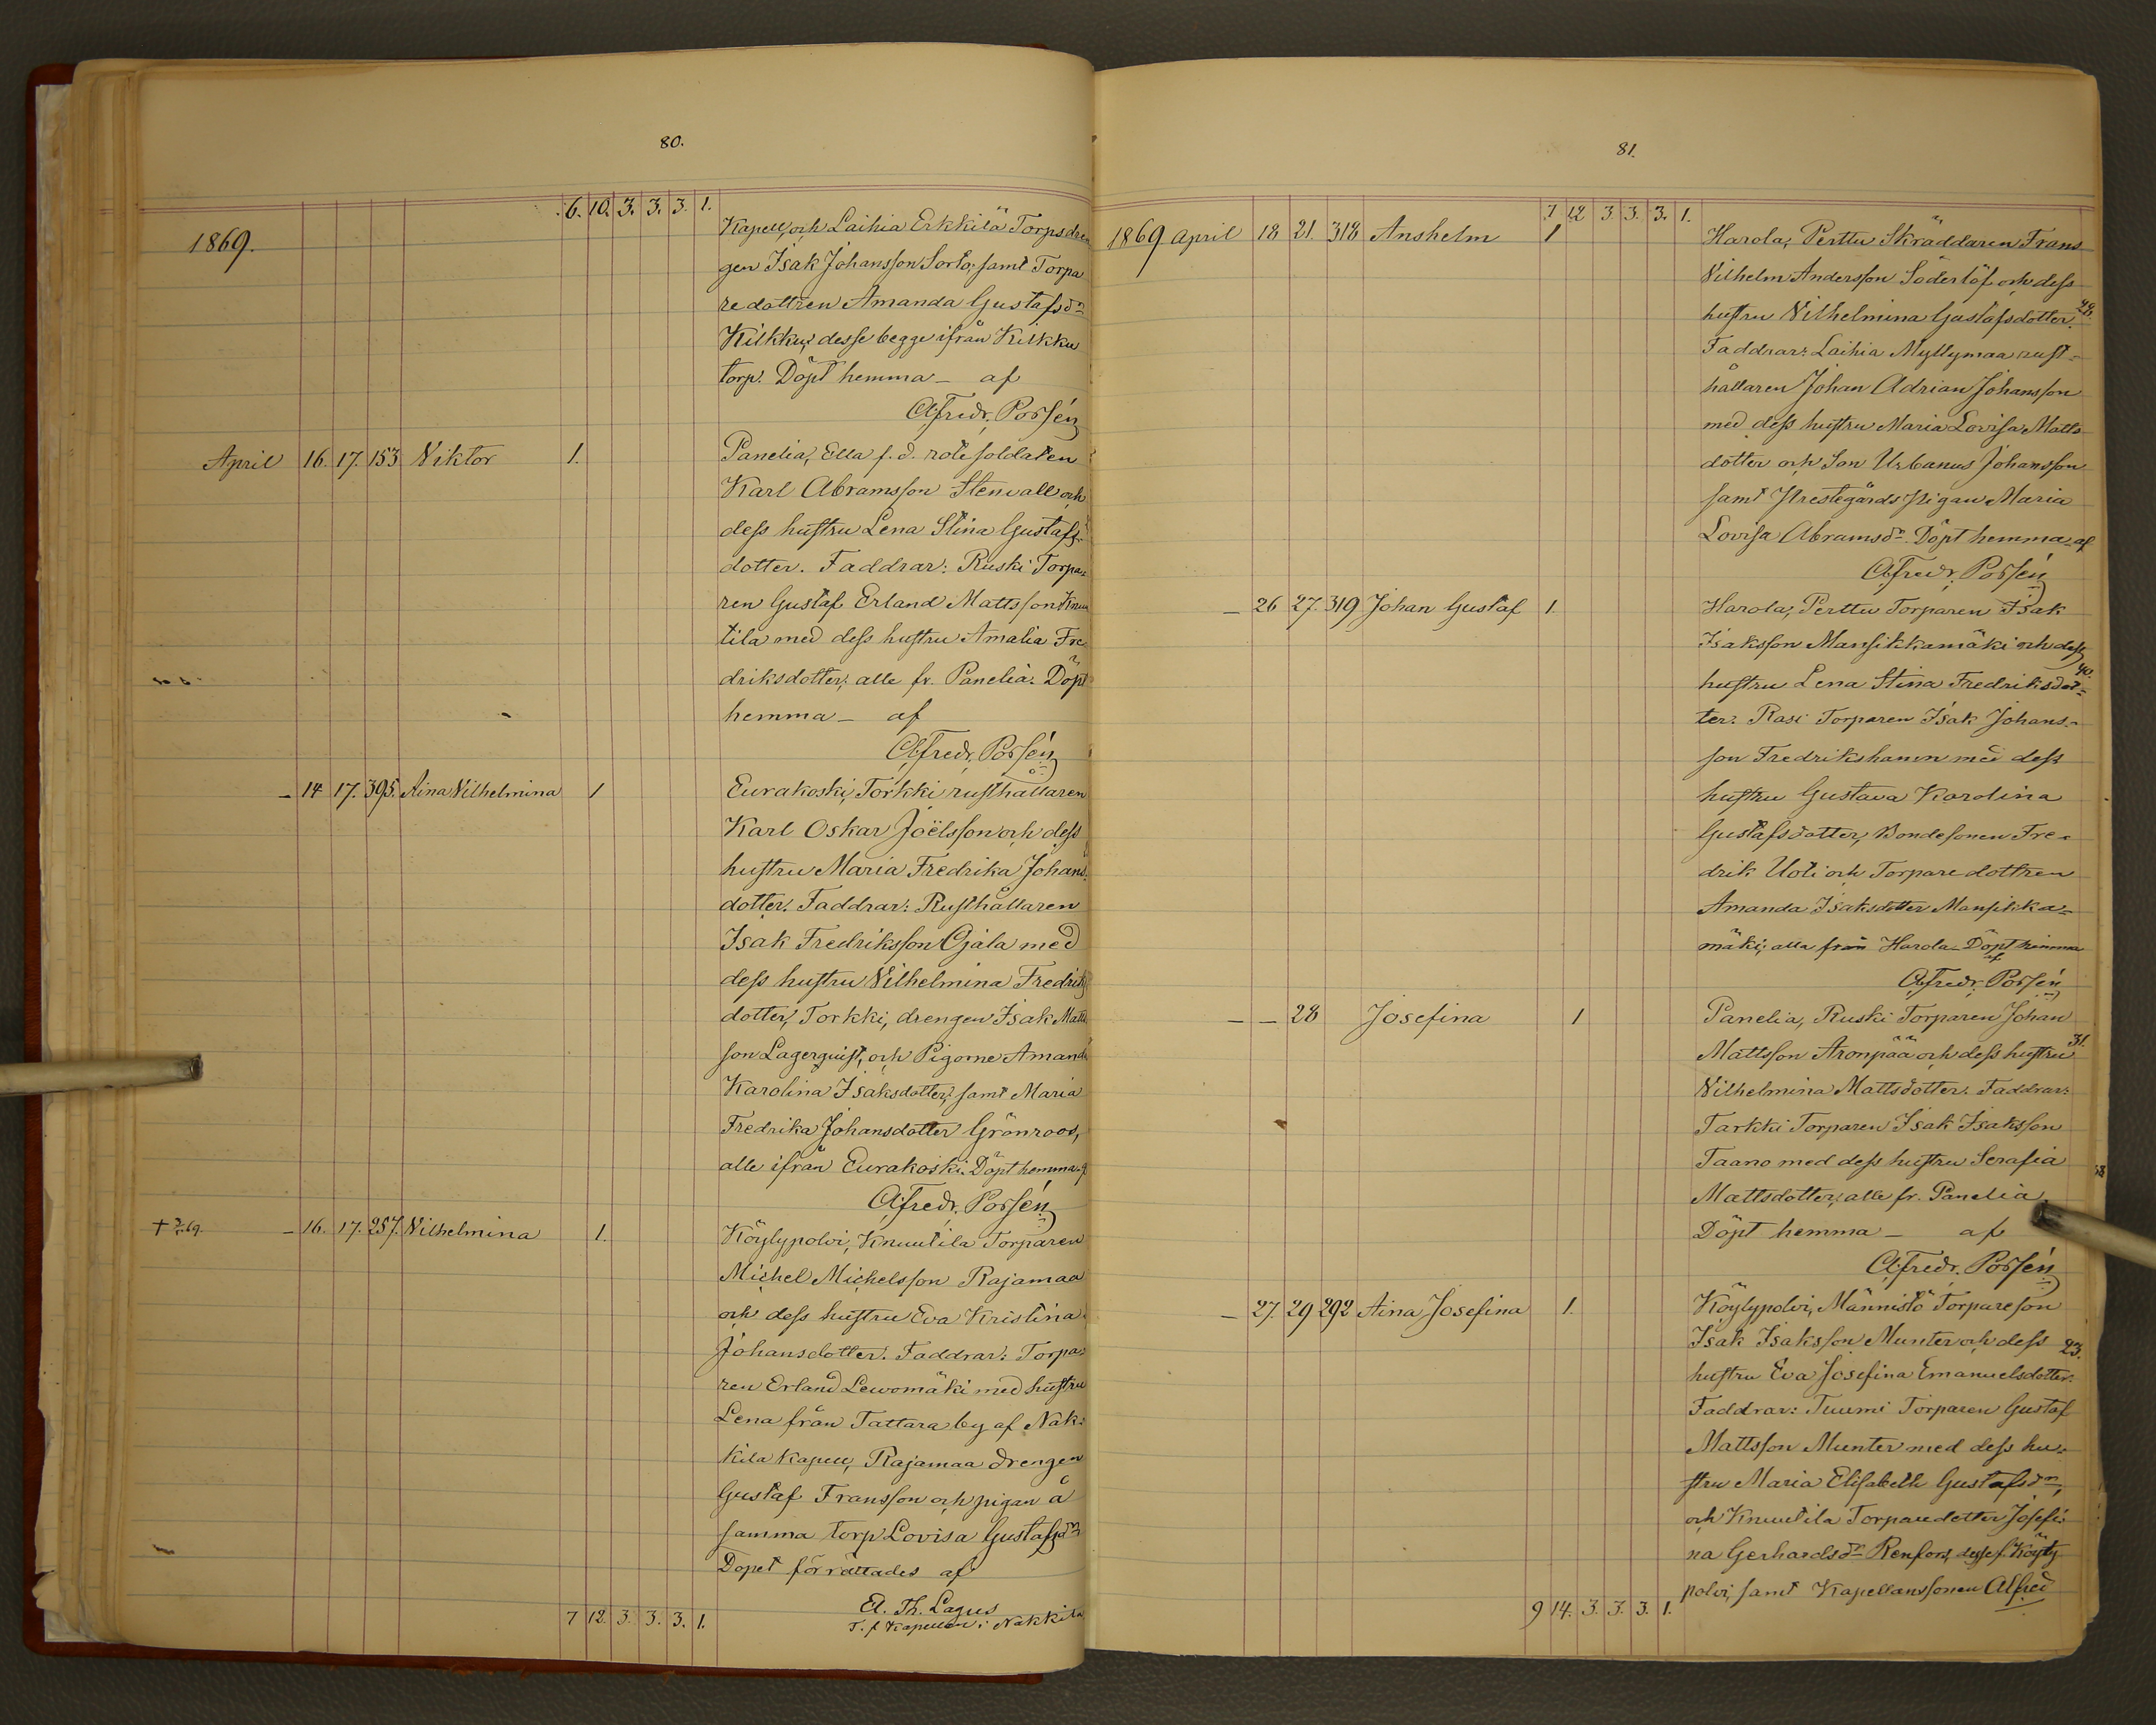 80.
6. 10. 3. 3. 3. 1.
1869.
Kapell, och Laihia Erkkilä Torpsdren
gen Isak Johansson Sorto, samt Torpa
redottren Amanda Gustafsdr
Kilkku, desse begge ifrån Kilkku
torp. Döpt hemma – af
Alfredr. Porsén
April 16. 17. 153 Viktor 1.
Panelia, Ella f. d. rotesoldaten
Karl Abramsson Stenvall och
dess hustru Lena Stina Gustafs-
dotter. Faddrar: Ruski Torpa-
ren Gustaf Erland Mattsson Knuu
tila med dess hustru Amalia Fre
driksdotter; alle fr. Panelia. Döpt
hemma – af
Alfredr. Porsén
– 14 17. 395. Aina Vilhelmina 1
Eurakoski, Torkki rusthållaren
Karl Oskar Joëlsson och dess
hustru Maria Fredrika Johans
dotter. Faddrar: Rusthållaren
Isak Fredriksson Ojala med
dess hustru Vilhelmina Fredriks
dotter, Torkki, drengen Isak Matts
son Lagerquist, och Pigorne Amanda
Karolina Isaksdotter, samt Maria
Fredrika Johansdotter Grönroos,
alle ifrån Eurakoski. Döpt hemma af
Alfredr. Porsén
– 16. 17. 257. Vilhelmina 1.
Köylypolvi, Knuutila Torparen
Michel Michelsson Rajamaa
och dess hustru Eva Kristina
Johansdotter. Faddrar: Torpa-
ren Erland Lewomäki med hustru
Lena från Tattara by af Nak-
kila Kapell, Rajamaa drengen
Gustaf Fransson och pigan å
samma torp Lovisa Gustafsdr
Dopet förrättades af
El. Th. Lagus
T. f. Kapellan i Nakkila
7 12. 3. 3. 3. 1.
81.
7 12 3. 3. 3. 1.
1869 April 18 21. 318 Anshelm 1
Harola, Perttu Skräddaren Frans
Vilhelm Andersson Söderlöf och dess
hustru Vilhelmina Gustafsdotter. 48.
Faddrar: Laihia Myllymaa rust-
hållaren Johan Adrian Johansson
med dess hustru Maria Lovisa Matts
dotter och Son Urbanus Johansson
samt Prestegårds pigan Maria
Lovisa Abramsdr. Döpt hemma af
Alfredr. Porsén
– 26 27. 319 Johan Gustaf 1.
Harola, Perttu Torparen Isak
Isaksson Mansikkamäki och dess
hustru Lena Stina Fredriksdot- 40.
ter. Rasi Torparen Isak Johans-
son Fredrikshamn med dess
hustru Gustava Karolina
Gustafsdotter, Bondesonen Fre-
drik Uoti och Torparedottren
Amanda Isaksdotter Mansikka-
mäki; alla från Harola. Döpt hemma
af
Alfredr. Porsén
– – 28 Josefina 1
Panelia, Ruski Torparen Johan
Mattsson Aronpää och dess hustru 31.
Vilhelmina Mattsdotter. Faddrar:
Tarkki Torparen Isak Isaksson
Taano med dess hustru Serafia
Mattsdotter; alle fr. Panelia.
Döpt hemma – af
Alfredr. Porsén
– 27. 29 292 Aina Josefina 1.
Köylypolvi, Männistö Torpareson
Isak Isaksson Munter och dess 23.
hustru Eva Josefina Emanuelsdotter.
Faddrar: Tuumi Torparen Gustaf
Mattsson Munter med dess hu-
stru Maria Elisabeth Gustafsdr,
och Knuutila Torparedotter Josefi-
na Gerhardsdr Renfors, desse f. Köyly
polvi, samt Kapellanssonen Alfred
9 14. 3. 3. 3. 1.